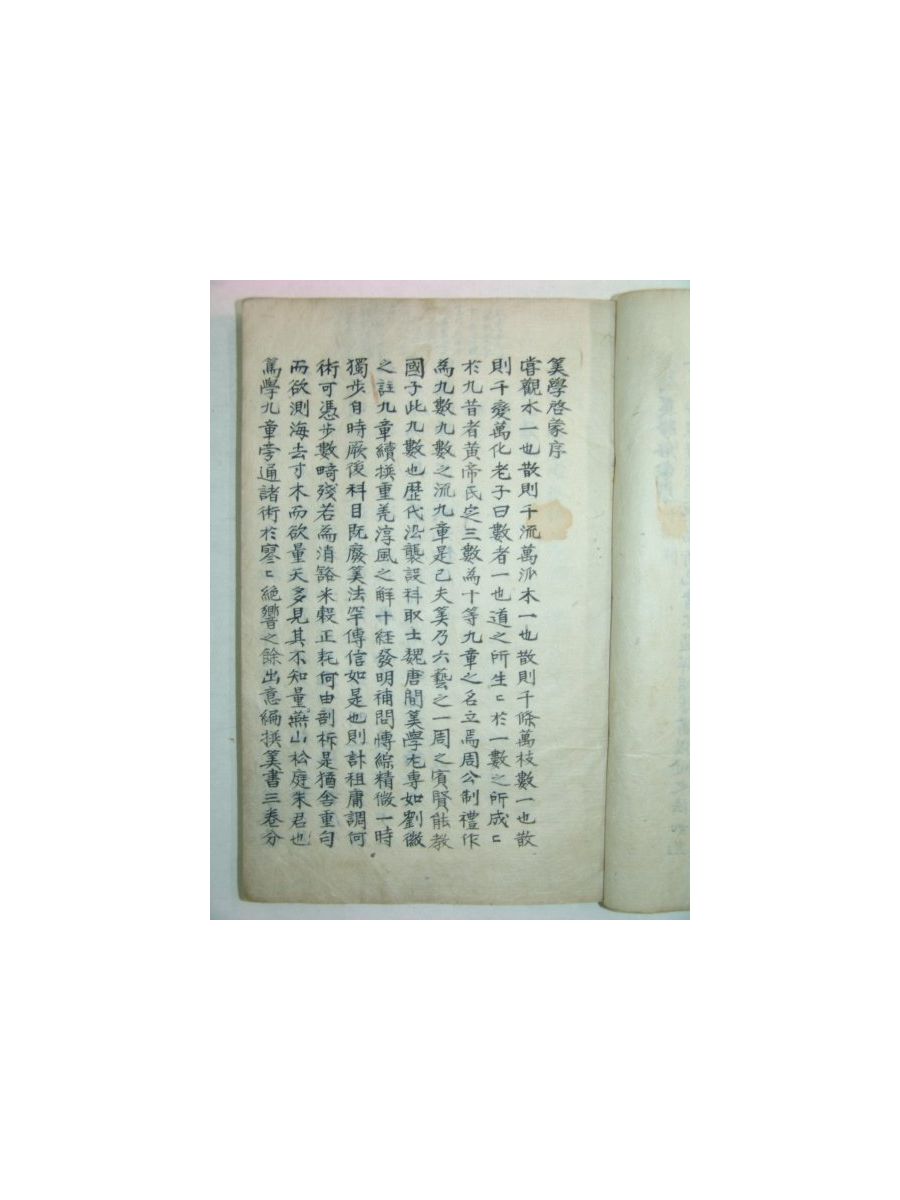 筭學啓蒙序
甞觀水一也散則千流萬派木一也散則千條萬枝数一也散
則千變萬化老子曰數者一也道之所生〻於一數之所成〻
於九昔者黄帝氏定三數為十等九章之名立焉周公制禮作
為九數九數之流九章是已夫筭乃六藝之一周之賓賢能教
國子此九數也歴代沿襲設科取士魏唐間筭學尤専如劉徽
之註九章續撰重差淳風之解十経發明補問愽綜精微一時
獨步自時厥後科目既廢筭法罕傳信如是也則計租庸調何
術可憑步數畸殘若為消豁米穀正耗何由剖析是猶舍重勾
而欲測海去寸木而欲量天多見其不知量燕山松庭朱君也
篤學九章旁通諸術於寥〻絶響之餘出意編撰筭書三卷分